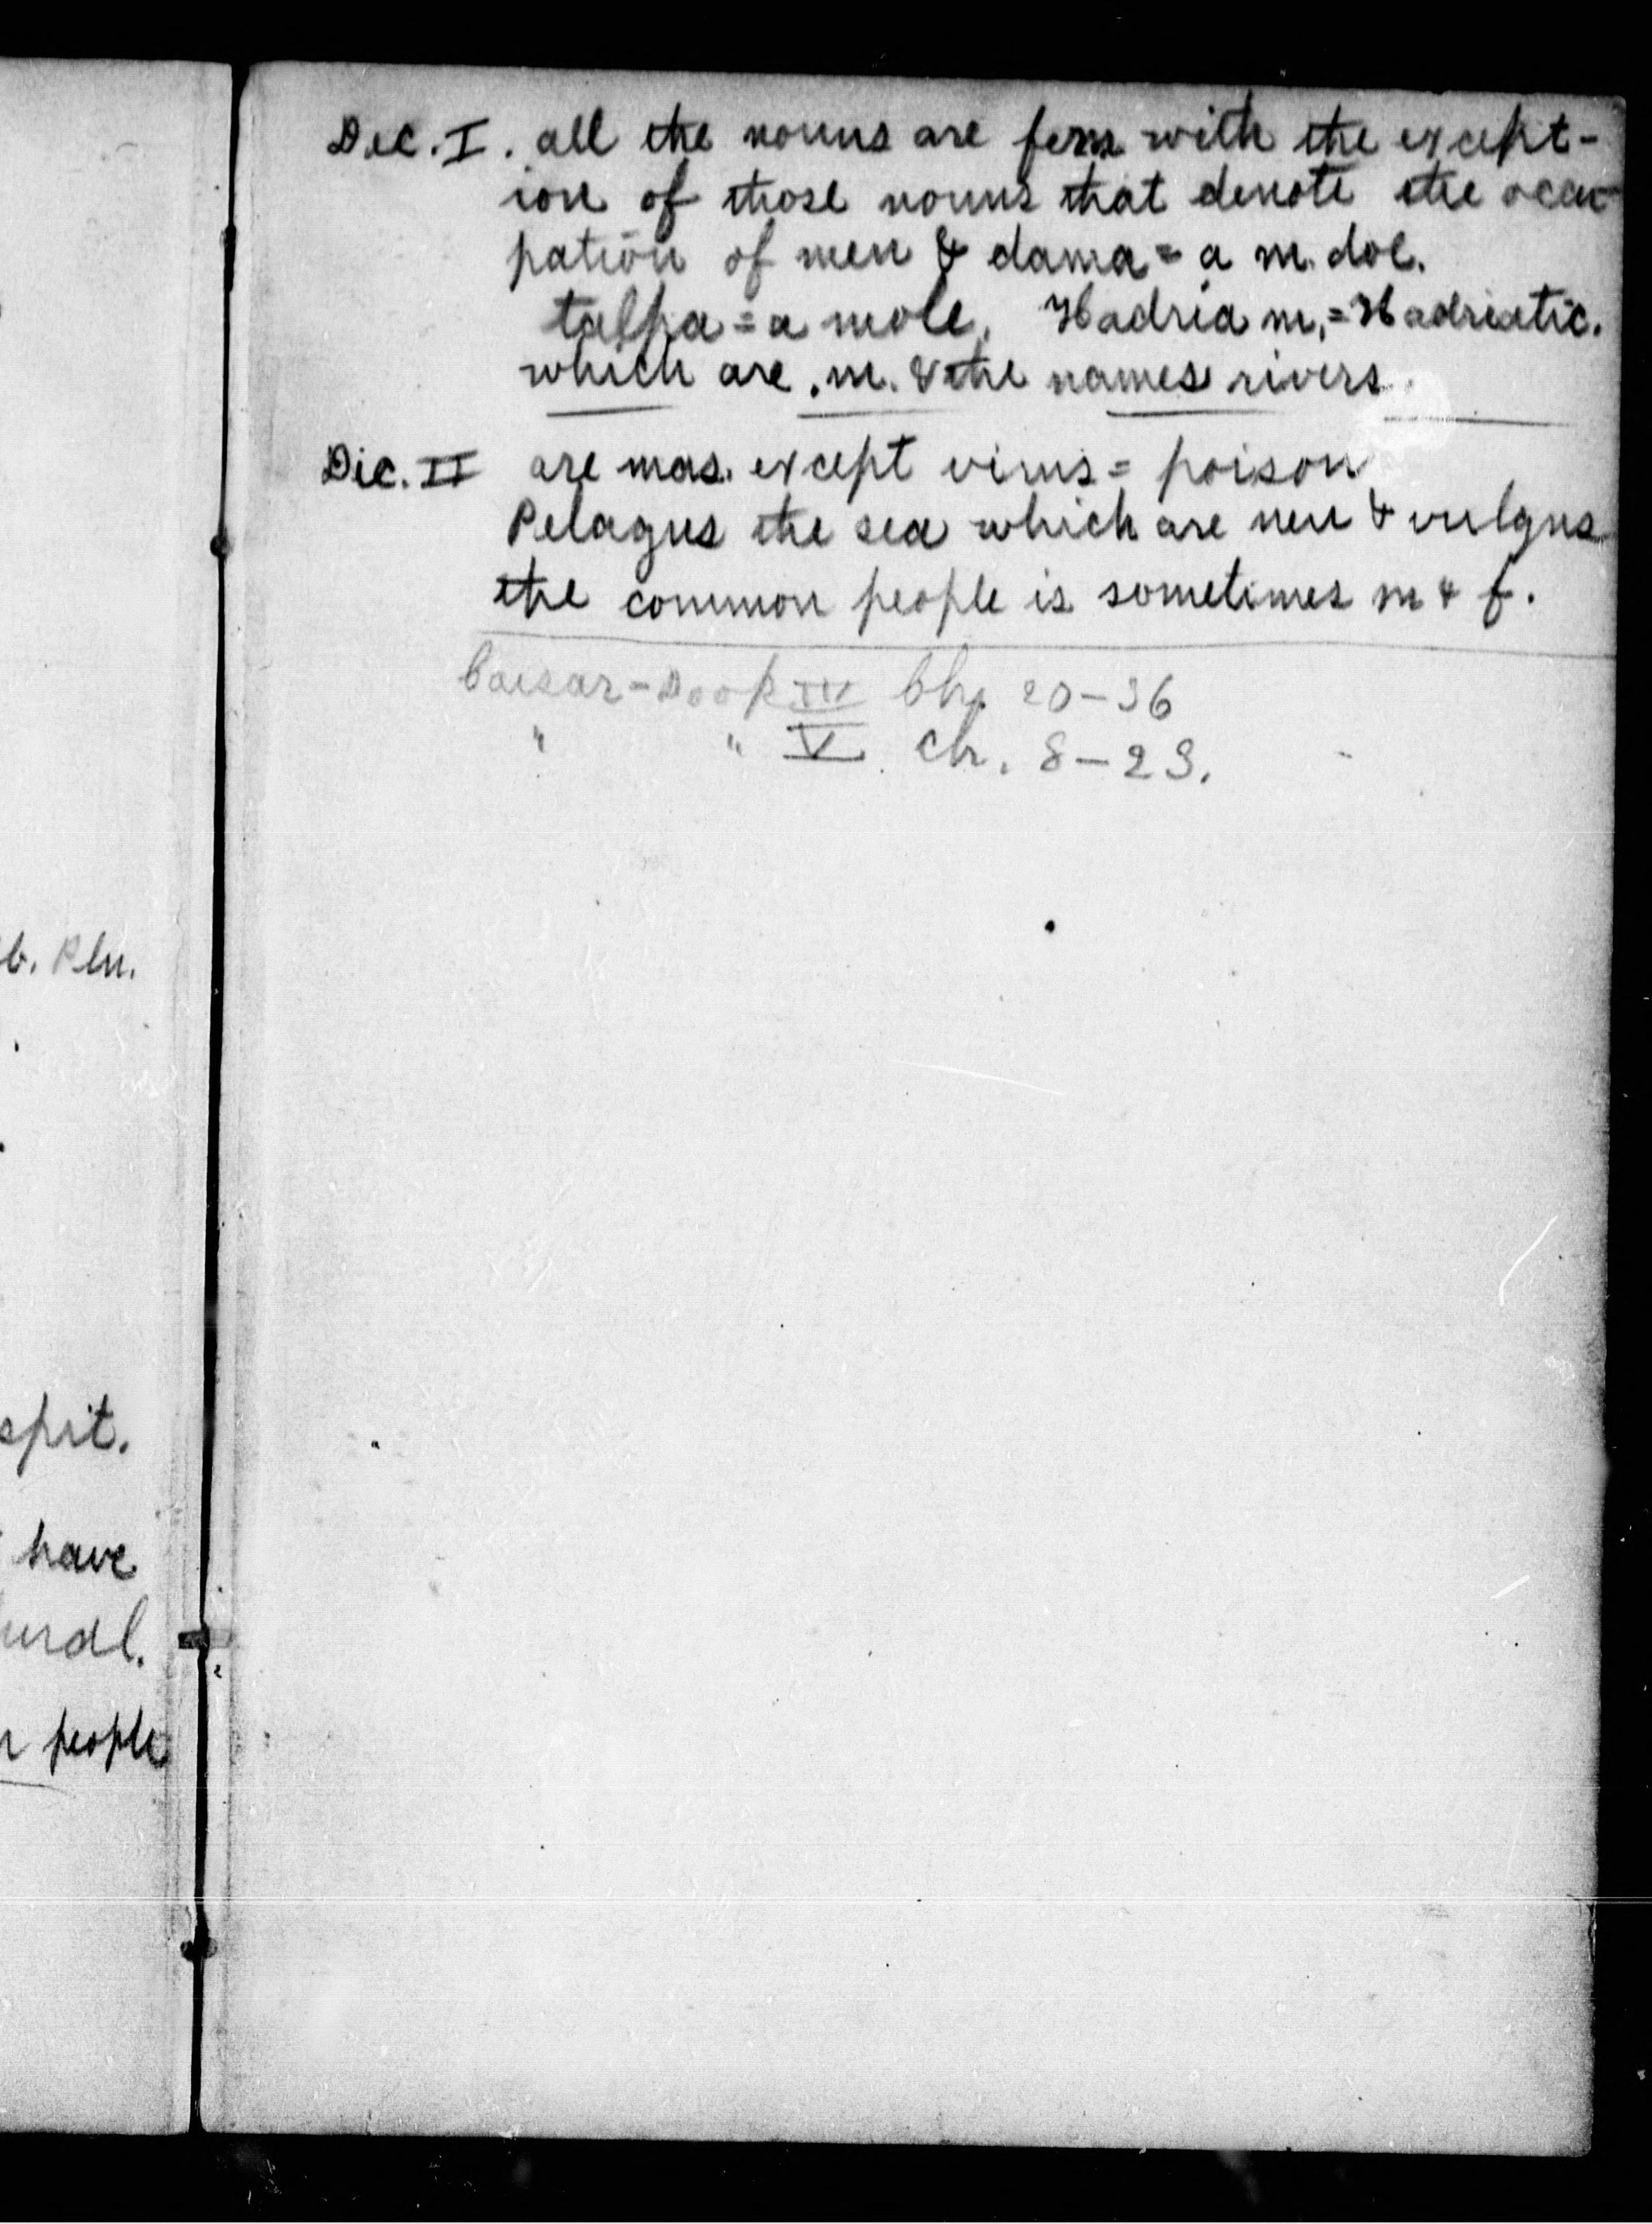 Dec. I. all the nouns are fem with the except-
ion of those nouns that denote the occu-
pation of men & dama = a m. doe.
talpa = a mole. Hadria m. = Hadriatic.
which are m. & the names rivers.
Dec. II are mas. except virus = poison
Pelagus the sea which are neu & vulgus
the common people is sometimes m & f.
Caesar - Book IV Ch. 20-36
" " V. Ch. 8-23.
b. Plu.
have
people